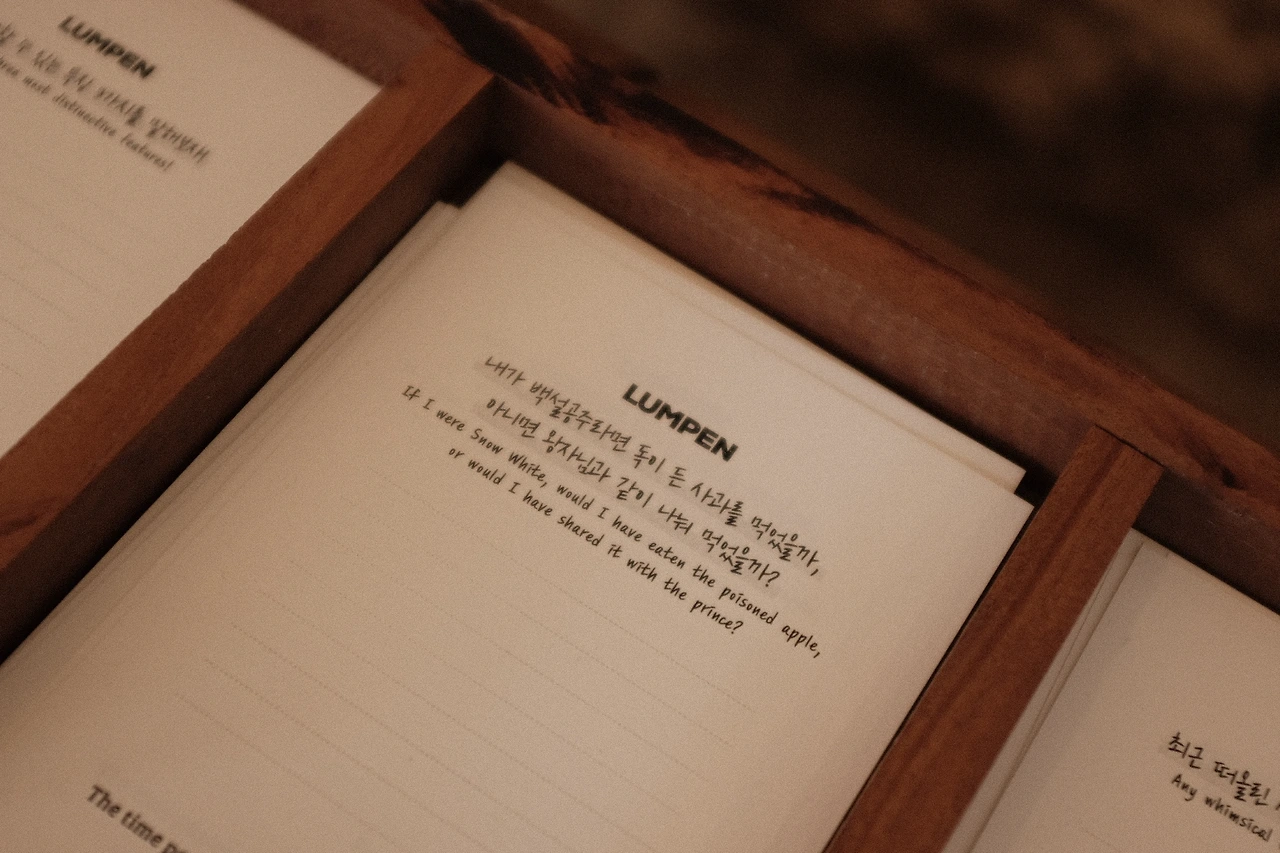 LUMPEN
수 있는 특징 3가지를 말해보자!
three most distinctive features!
LUMPEN
내가 백설공주라면 독이 든 사과를 먹었을까,
아니면 왕자님과 같이 나눠 먹었을까?
If I were Snow White, would I have eaten the poisoned apple,
or would I have shared it with the prince?
The time
최근 떠올린
Any whimsical